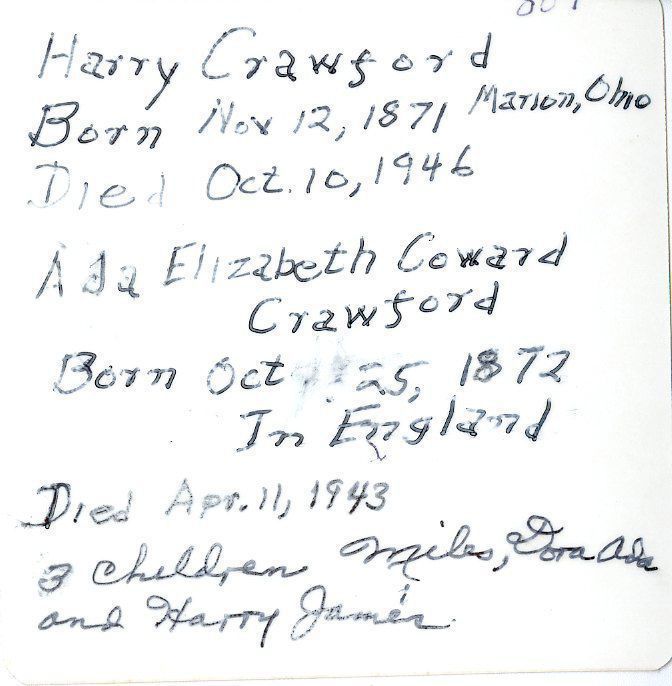 Harry Crawford
Born Nov 12, 1871 Marion, Ohio
Died Oct. 10, 1946
Ada Elizabeth Coward
Crawford
Born Oct 25, 1872
In England
Died Apr. 11, 1943
3 children Miles, Dora Ada
and Harry James